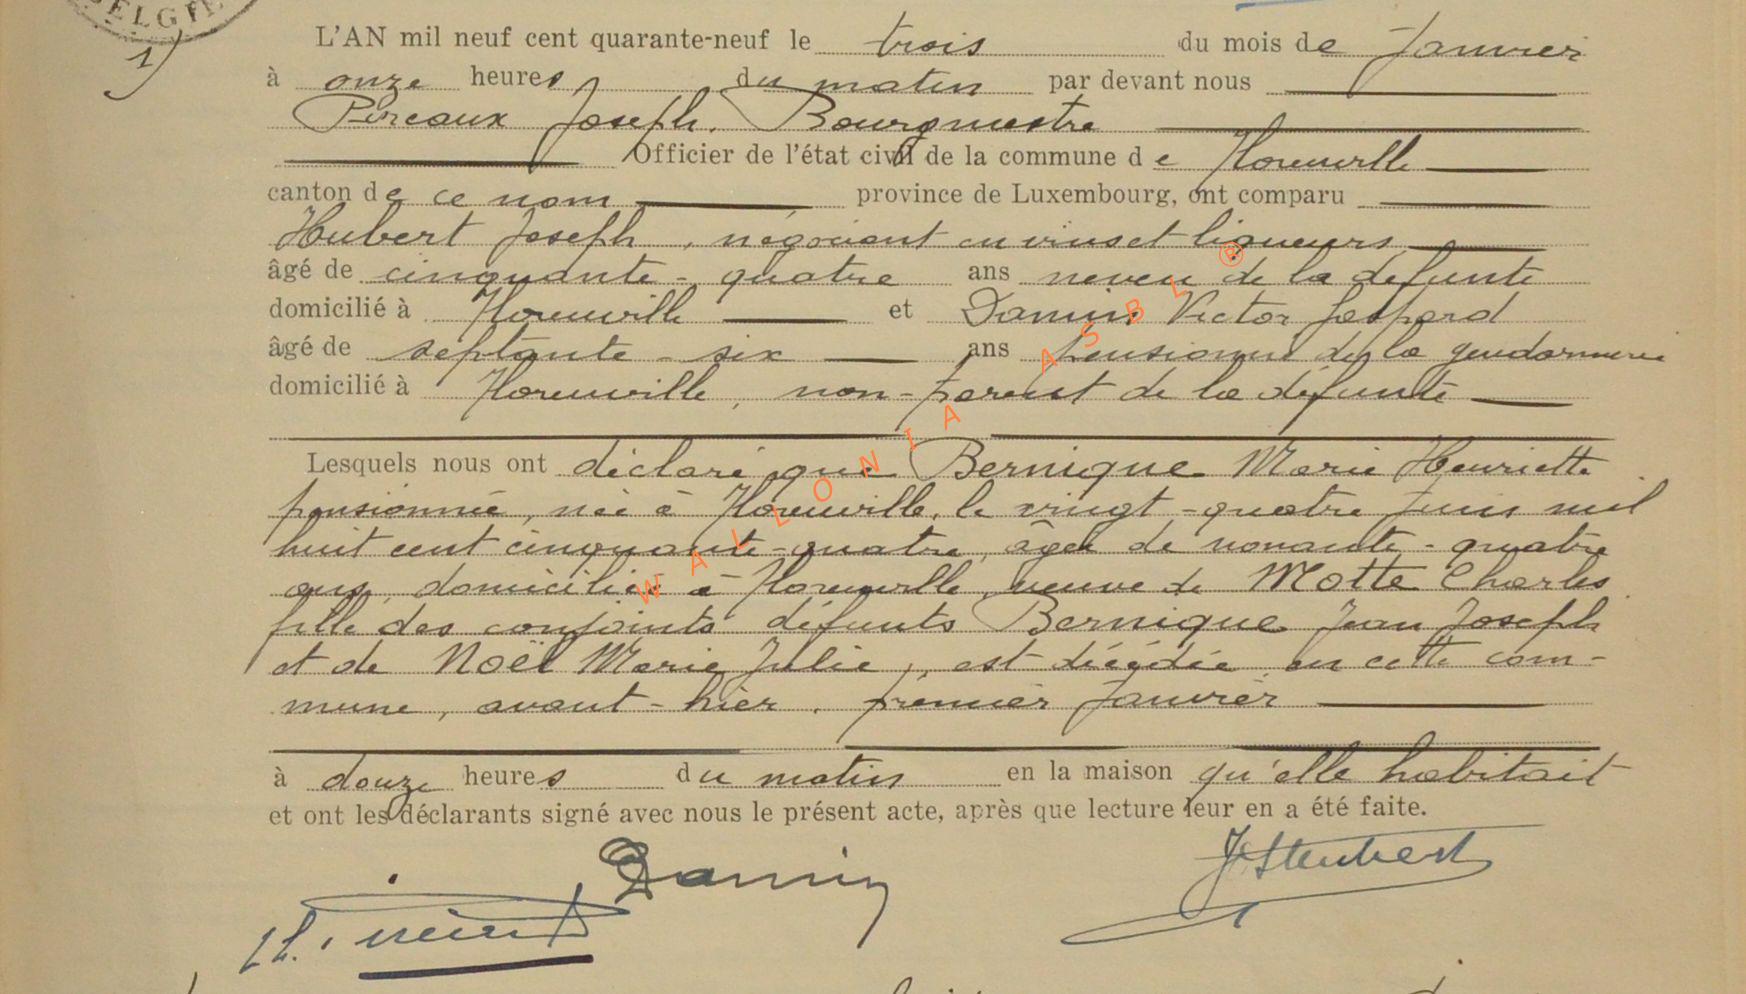 BELGIË
1)
L'AN mil neuf cent quarante-neuf le trois du mois de Janvier
à onze heures du matin par devant nous
Pireaux Joseph. Bourgmestre
Officier de l'état civil de la commune de Horenville
canton de ce nom province de Luxembourg, ont comparu
Hubert Joseph, négociant en vins et liqueurs
âgé de cinquante-quatre ans neveu de la défunte
domicilié à Horenville et Damin Victor Gaspard
âgé de septante-six ans pensionné de la gendarmerie
domicilié à Horenville, non-parent de la défunte
Lesquels nous ont déclaré que Bernique Marie Henriette
pensionnée, née à Horenville, le vingt-quatre juin mil
huit cent cinquante-quatre, âgée de nonante-quatre
ans, domiciliée à Horenville, veuve de Motte Charles
fille des conjoints défunts Bernique Jean Joseph
et de Noël Marie Julie, est décédée en cette com-
mune, avant-hier, premier Janvier
à douze heures du matin en la maison qu'elle habitait
et ont les déclarants signé avec nous le présent acte, après que lecture leur en a été faite.
Damin JHubert
WALLONIA ASBL ®